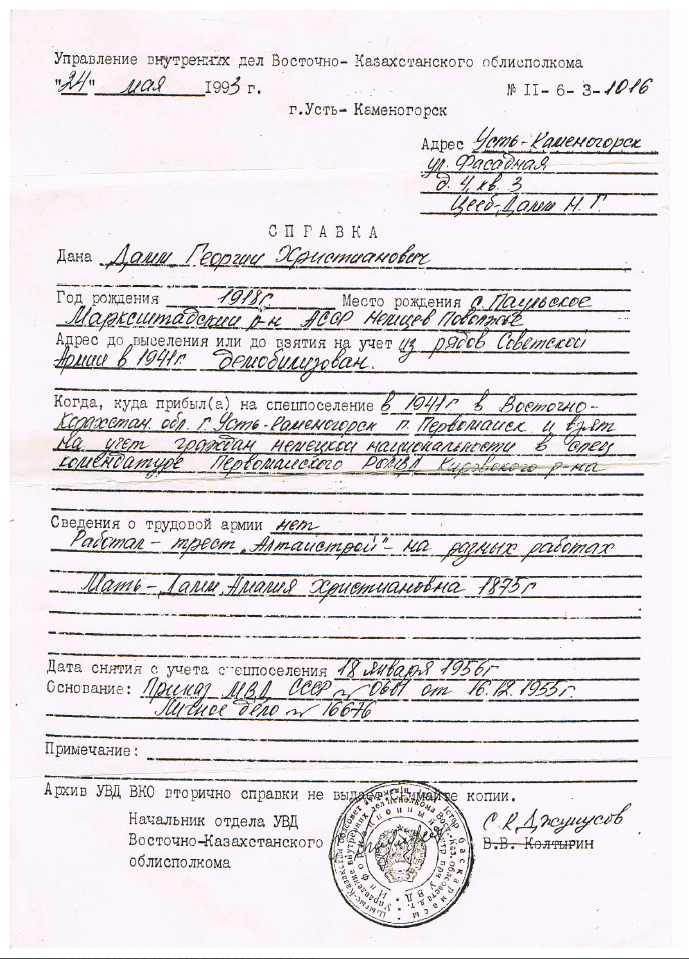 Управление внутренних дел Восточно-Казахстанского облисполкома
"24" мая 1993 г. № II-6-3-1016
г.Усть-Каменогорск
Адрес Усть-Каменогорск
ул. Фасадная
д. 4, кв. 3
Цееб-Дамм Н. Г.
СПРАВКА
Дана Дамм Георгий Христианович
Год рождения 1918г. Место рождения с. Паульское
Марксштадский р-н АССР Немцев Поволжье
Адрес до выселения или до взятия на учет из рядов Советской
Армии в 1941г демобилизован.
Когда, куда прибыл(а) на спецпоселение в 1941г в Восточно-
Казахстан. обл. г. Усть-Каменогорск п. Первомайск и взят
на учет граждан немецкой национальности в спец
комендатуре Первомайского РОМВД Кировского р-на
Сведения о трудовой армии нет
Работал - трест „Алтайстрой" - на разных работах
Мать - Дамм Амалия Христиановна 1875г
Дата снятия с учета спецпоселения 18 января 1956г
Основание: Приказ МВД СССР № 0601 от 16.12.1955г.
Личное дело № 16676
Примечание:
Архив УВД ВКО вторично справки не выдает. Снимайте копии.
Начальник отдела УВД С.К. Джунусов
Восточно-Казахстанского В.В. Колтырин
облисполкома